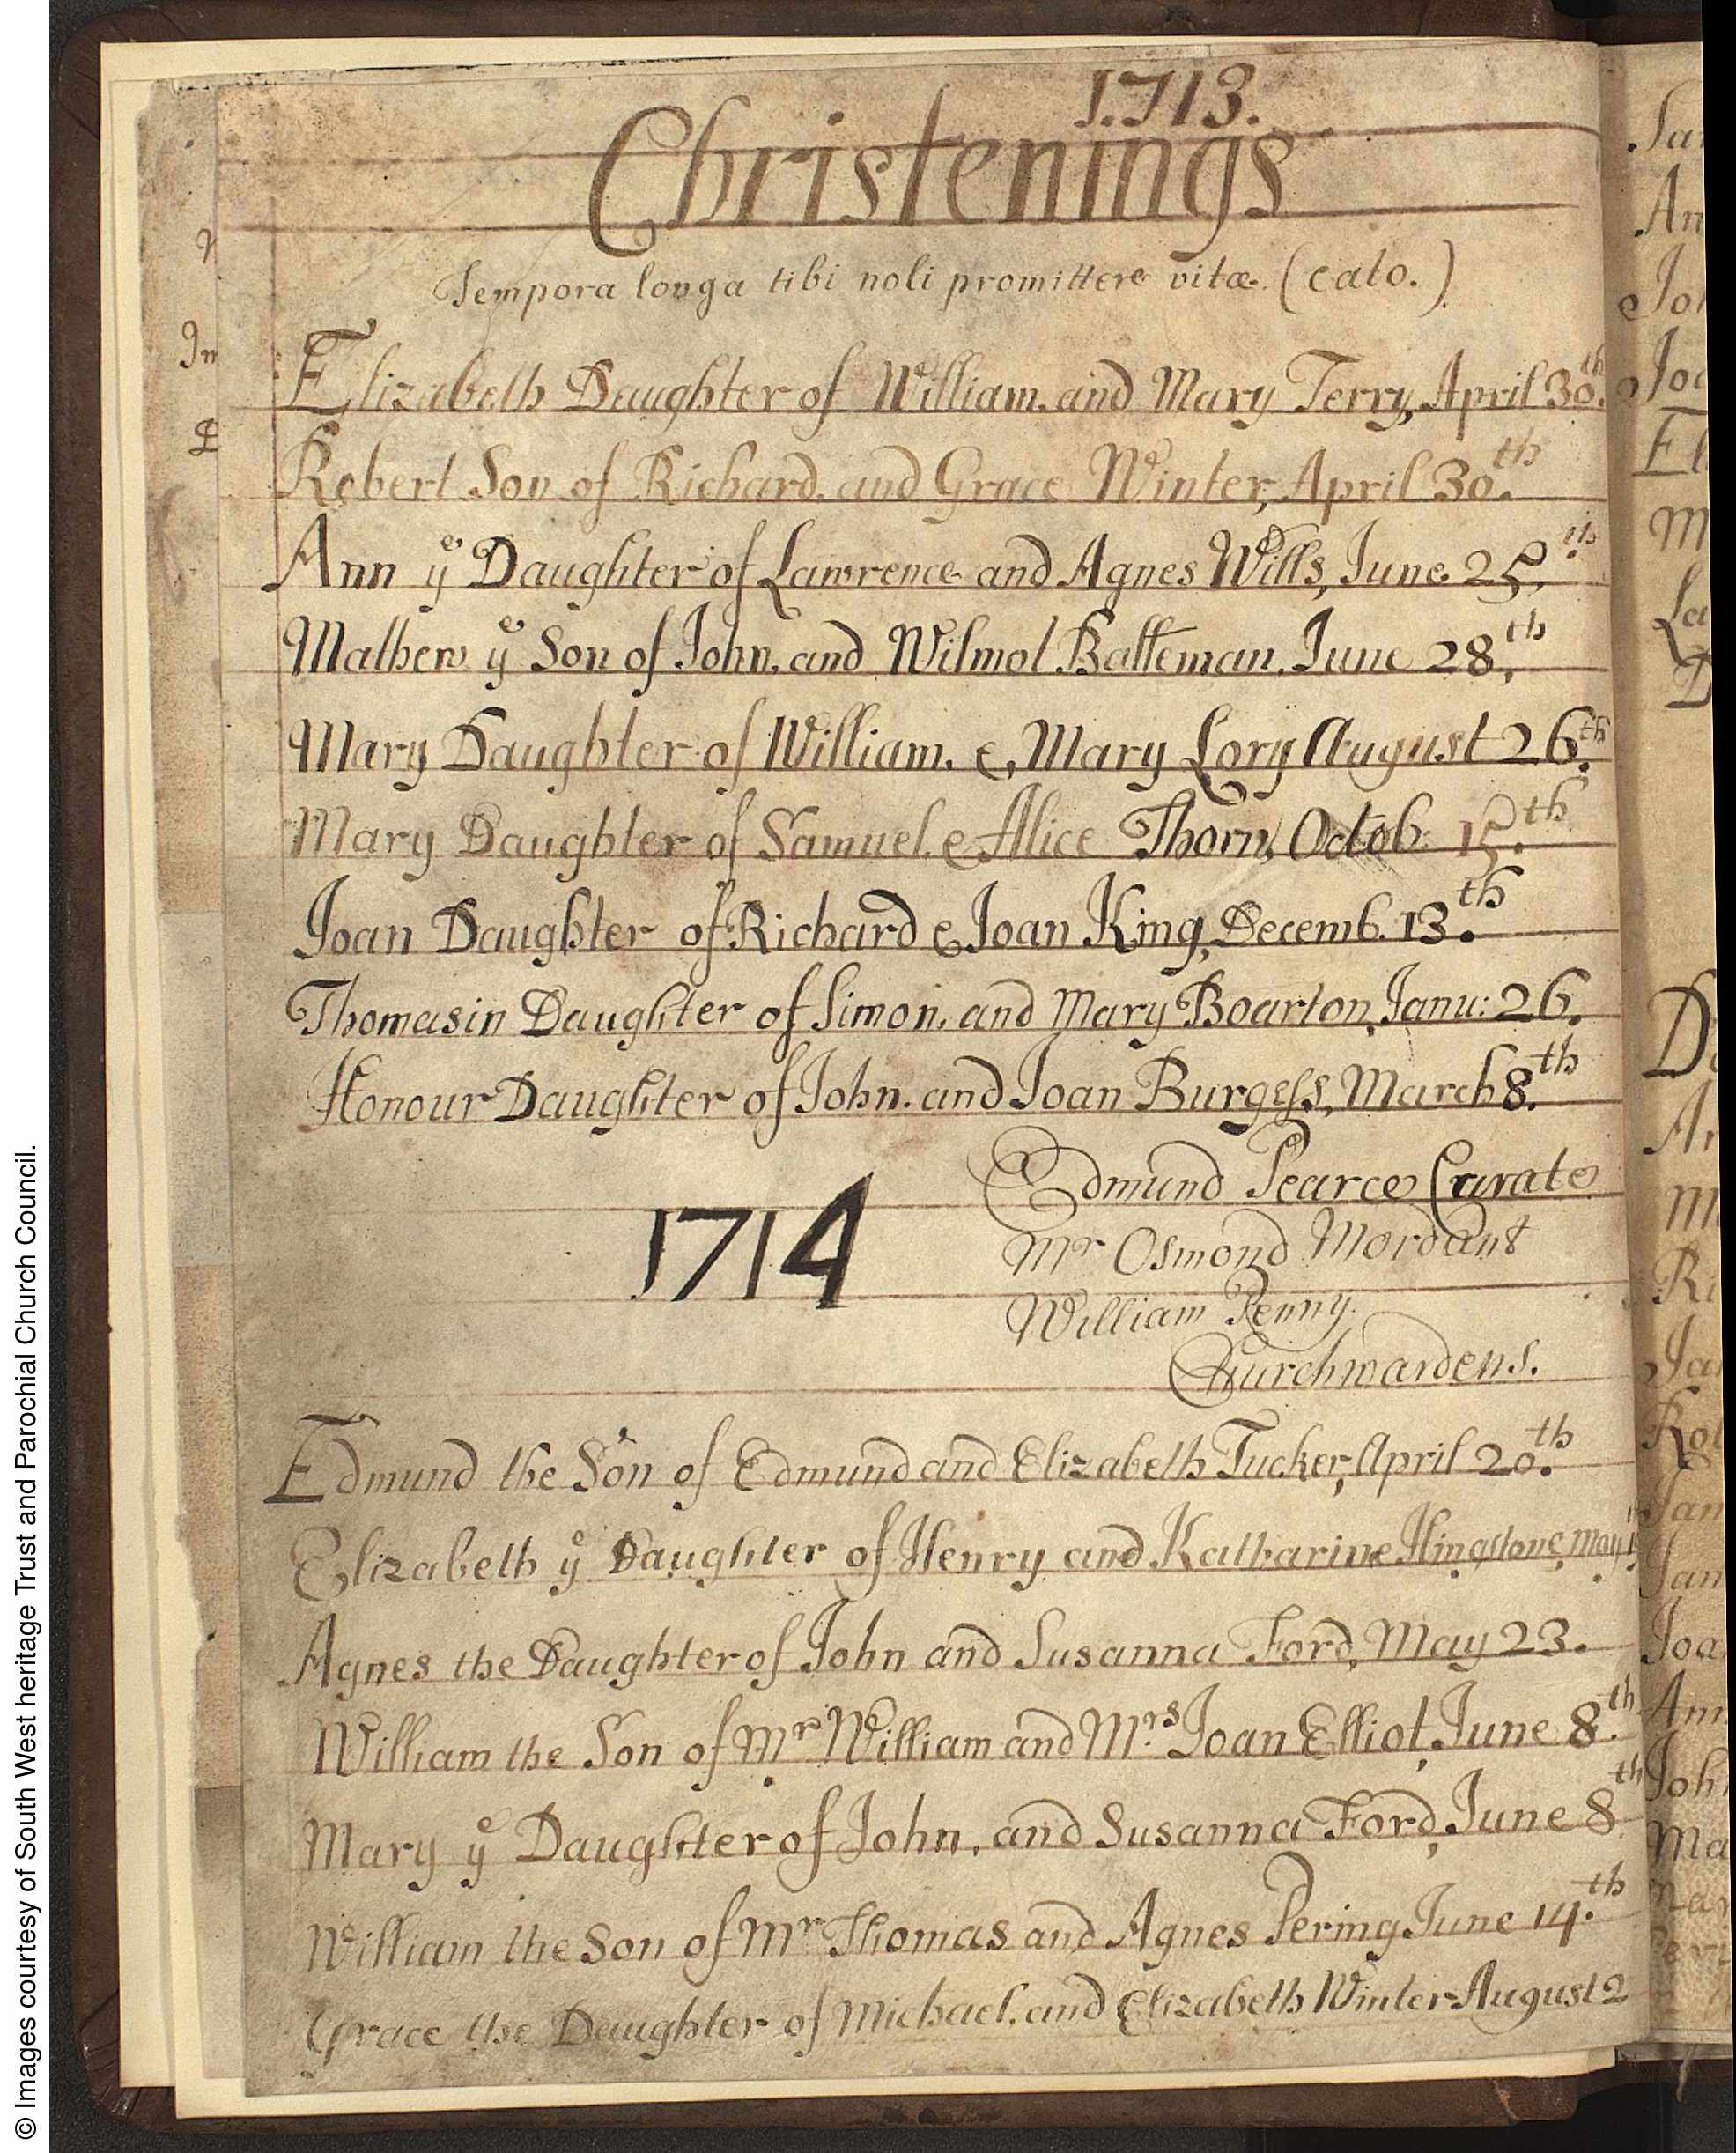 1713.
Christenings
Tempora longa tibi noli promittere vitæ. (Cato.)
Elizabeth Daughter of William. and Mary Terry, April 30th.
Robert Son of Richard. and Grace Winter, April 30th.
Ann ye Daughter of Lawrence and Agnes Wills, June. 25th.
Mathew ye Son of John. and Wilmot Batteman. June 28th,
Mary Daughter of William. & Mary Lory August 26th.
Mary Daughter of Samuel. & Alice Thorn, Octob: 15th.
Joan Daughter of Richard & Joan King, Decemb. 13th.
Thomasin Daughter of Simon. and Mary Boarton, Janu: 26.
Honour Daughter of John. and Joan Burgess, March 8th.
Edmund Pearce Curate
1714
Mr Osmond Mordant
William Penny.
Churchwardens.
Edmund the Son of Edmund and Elizabeth Tucker, April 20th.
Elizabeth ye Daughter of Henry and Katharine Hingstone, May
Agnes the Daughter of John and Susanna Ford, May 23.
William the Son of Mr William and Mrs. Joan Elliot, June 8th.
Mary ye Daughter of John, and Susanna Ford, June 8th
William the Son of Mr Thomas and Agnes Pering June 14th.
Grace the Daughter of Michael. and Elizabeth Winter August 2
© Images courtesy of South West heritage Trust and Parochial Church Council.